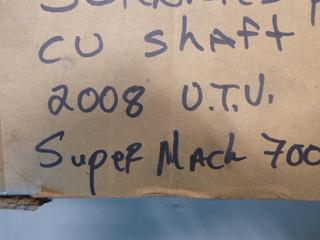 CU Shaft
2008 U.T.U.
Super Mach 700